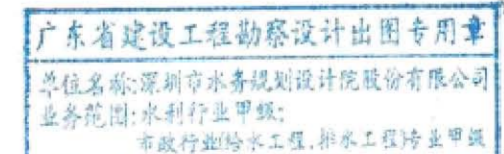 广东省建设工程勘察设计出图专用章
单位名称:深圳市水务规划设计院股份有限公司
业务范围:水利行业甲级;
市政行业(给水工程,排水工程)专业甲级